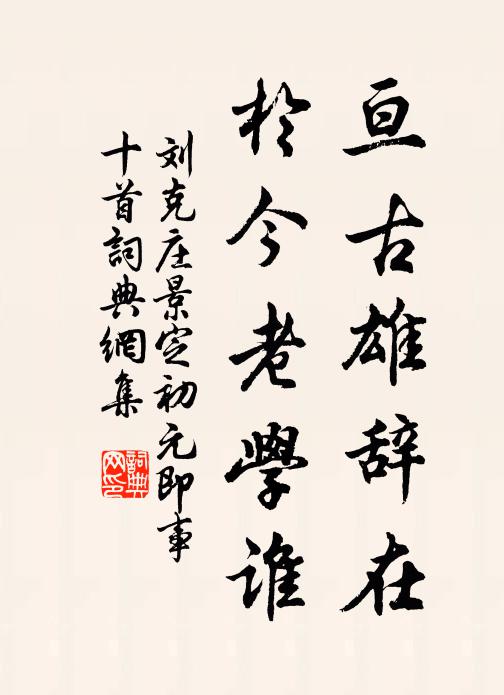 亘古雄辞在
於今老學谁
刘克庄景定初元即事
十首詞典網集
詞典网印